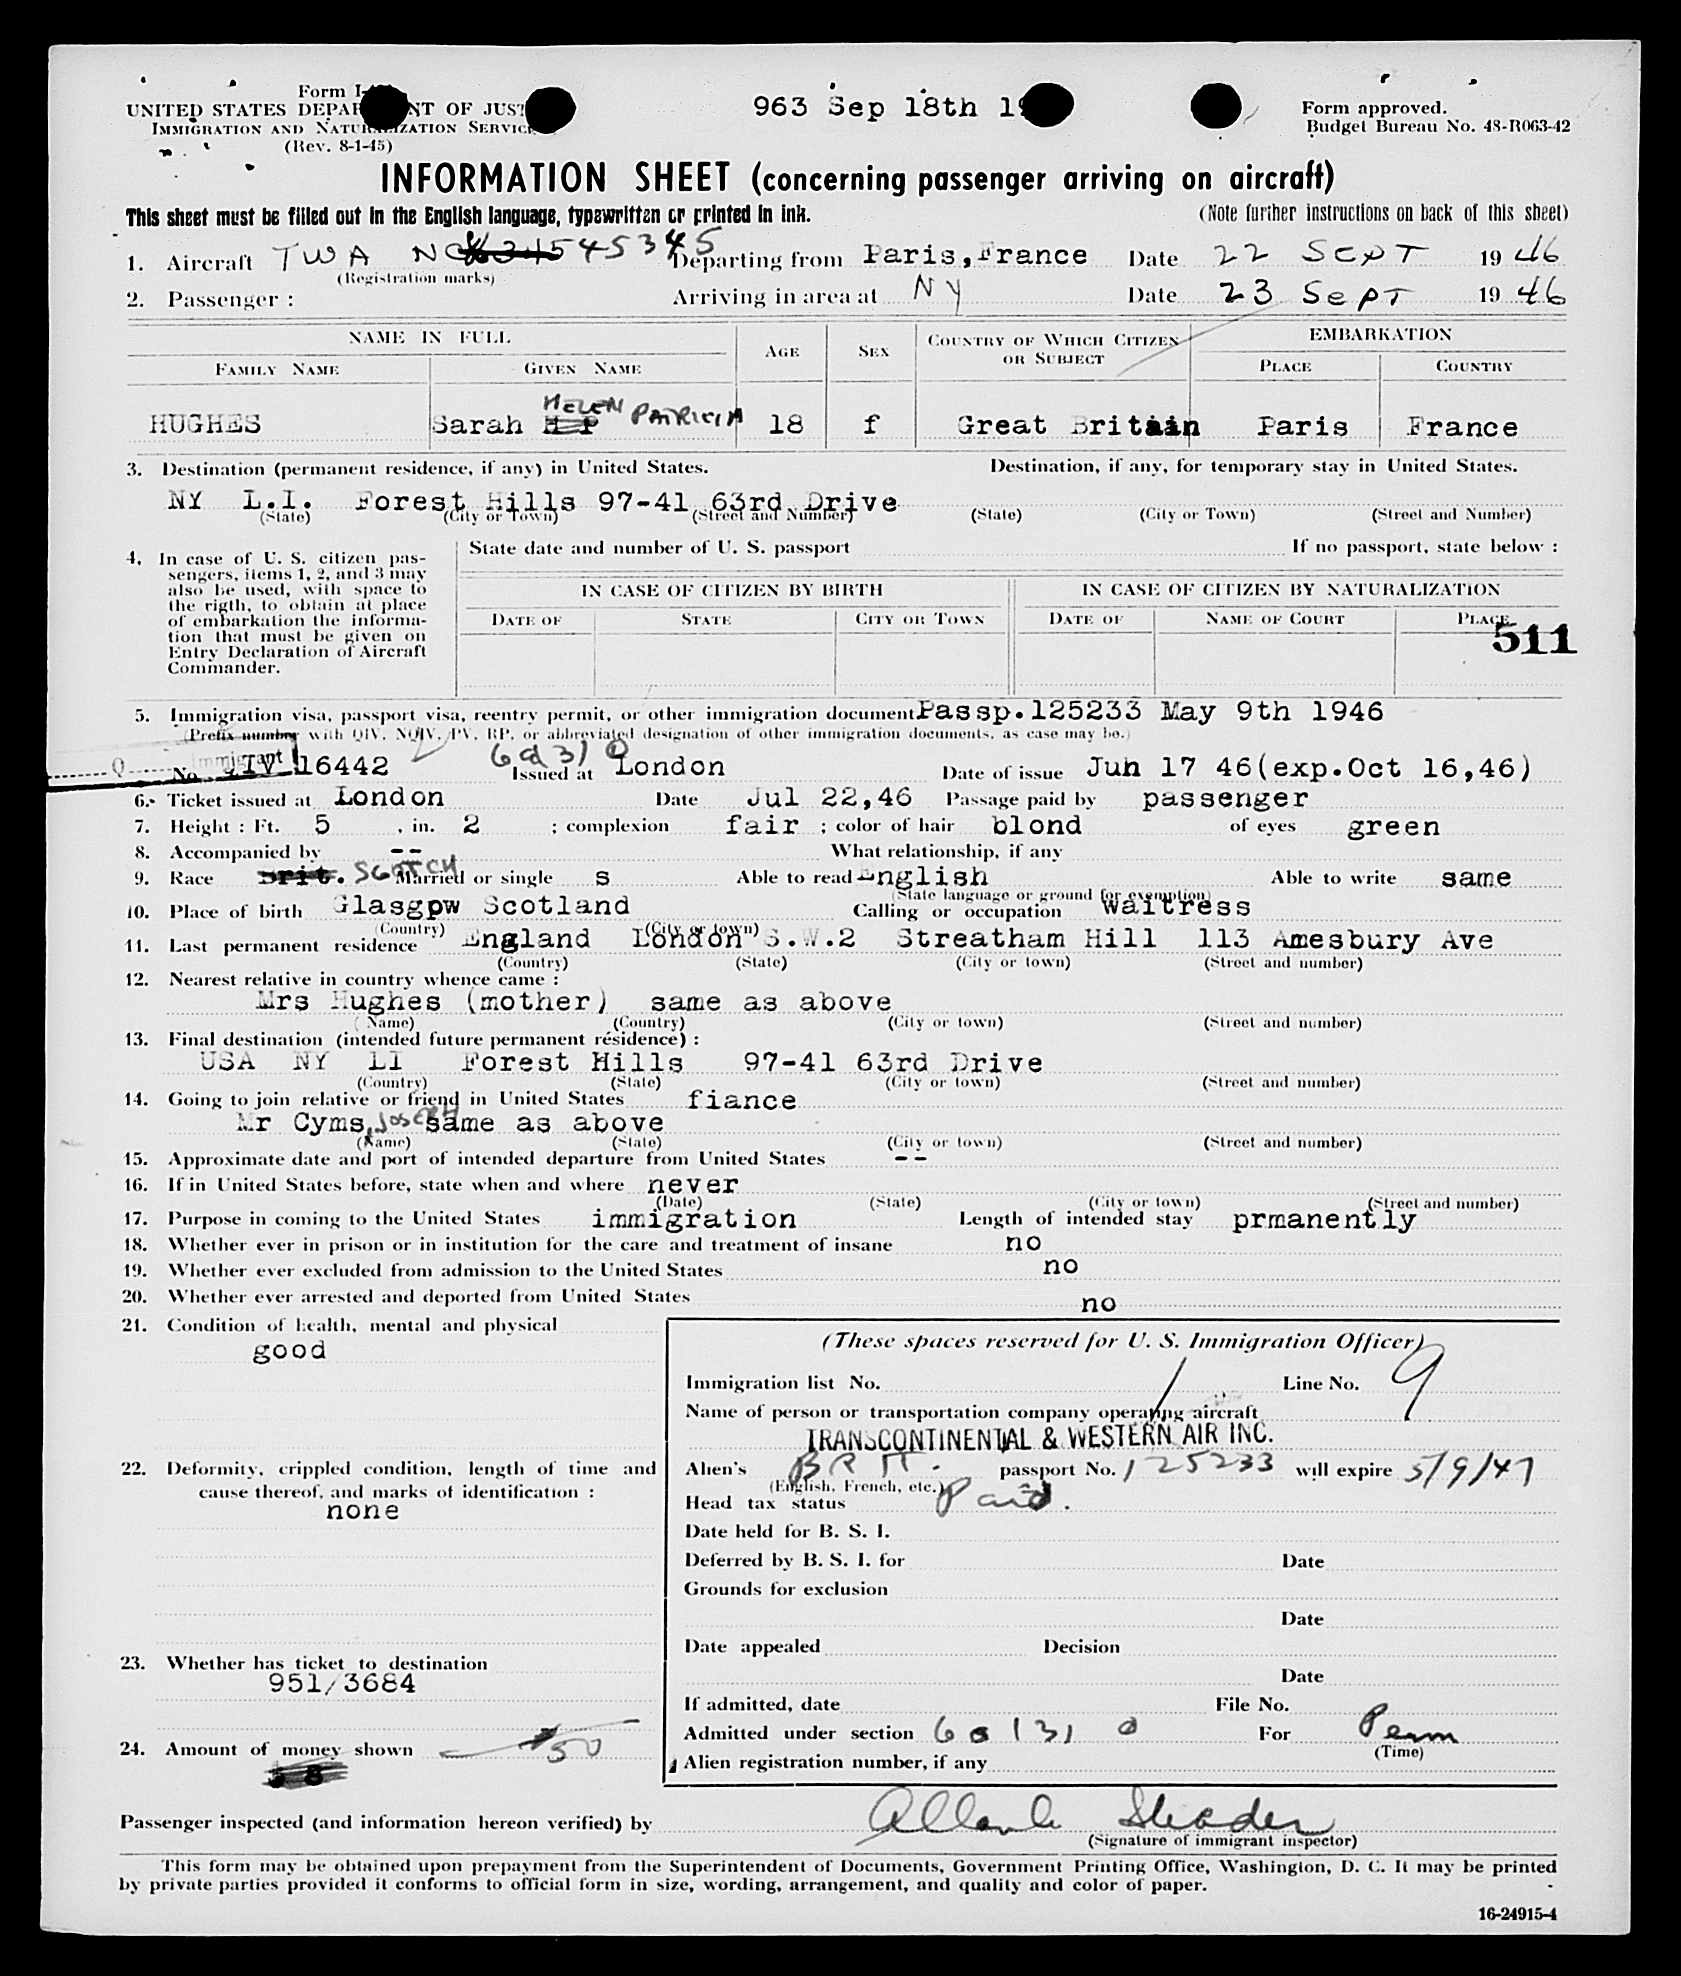 Form I-
963 Sep 18th 1
Form approved.
UNITED STATES DEPAR NT OF JUST
Budget Bureau No. 48-R063-42
IMMIGRATION AND NATURALIZATION SERVICE
(Rev. 8-1-45)
INFORMATION SHEET (concerning passenger arriving on aircraft)
This sheet must be filled out in the English language, typewritten or printed in ink. (Note further instructions on back of this sheet)
1. Aircraft TWA NC 45345 Departing from Paris, France Date 22 SEPT 1946
(Registration marks)
2. Passenger : Arriving in area at NY Date 23 SEPT 1946
NAME IN FULL AGE SEX COUNTRY OF WHICH CITIZEN OR SUBJECT EMBARKATION
FAMILY NAME GIVEN NAME PLACE COUNTRY
HUGHES Sarah H P HELEN PATRICIA 18 f Great Britain Paris France
3. Destination (permanent residence, if any) in United States. Destination, if any, for temporary stay in United States.
NY L.I. Forest Hills 97-41 63rd Drive
(State) (City or Town) (Street and Number) (State) (City or Town) (Street and Number)
4. In case of U. S. citizen pas-
sengers, items 1, 2, and 3 may
also be used, with space to
the rigth, to obtain at place
of embarkation the informa-
tion that must be given on
Entry Declaration of Aircraft
Commander.
State date and number of U. S. passport If no passport, state below :
IN CASE OF CITIZEN BY BIRTH IN CASE OF CITIZEN BY NATURALIZATION
DATE OF STATE CITY OR TOWN DATE OF NAME OF COURT PLACE
511
5. Immigration visa, passport visa, reentry permit, or other immigration document Passp.125233 May 9th 1946
(Prefix number with QIV, NQIV, PV, RP, or abbreviated designation of other immigration documents, as case may be.)
Q Immigrant
No. IV 16442 6a31 Q Issued at London Date of issue Jun 17 46(exp.Oct 16,46)
6. Ticket issued at London Date Jul 22,46 Passage paid by passenger
7. Height : Ft. 5 , in. 2 ; complexion fair ; color of hair blond of eyes green
8. Accompanied by -- What relationship, if any
9. Race Brit. SCOTCH Married or single s Able to read English Able to write same
(State language or ground for exemption)
10. Place of birth Glasgpw Scotland Calling or occupation waitress
(Country) (City or town)
11. Last permanent residence England London S.W.2 Streatham Hill 113 Amesbury Ave
(Country) (State) (City or town) (Street and number)
12. Nearest relative in country whence came :
Mrs Hughes (mother) same as above
(Name) (Country) (City or town) (Street and number)
13. Final destination (intended future permanent résidence) :
USA NY LI Forest Hills 97-41 63rd Drive
(Country) (State) (City or town) (Street and number)
14. Going to join relative or friend in United States fiance
Mr Cyms, JOSEPH same as above
(Name) (State) (City or town) (Street and number)
15. Approximate date and port of intended departure from United States --
16. If in United States before, state when and where never
(Date) (State) (City or town) (Street and number)
17. Purpose in coming to the United States immigration Length of intended stay prmanently
18. Whether ever in prison or in institution for the care and treatment of insane no
19. Whether ever excluded from admission to the United States no
20. Whether ever arrested and deported from United States no
21. Condition of health, mental and physical
good
(These spaces reserved for U. S. Immigration Officer)
Immigration list No. 1 Line No. 9
Name of person or transportation company operating aircraft
TRANSCONTINENTAL & WESTERN AIR INC.
22. Deformity, crippled condition, length of time and
cause thereof, and marks of identification :
none
Alien's BRIT. passport No. 125233 will expire 5/9/47
(English, French, etc.)
Head tax status Paid.
Date held for B. S. I.
Deferred by B. S. I. for Date
Grounds for exclusion
Date
Date appealed Decision
Date
23. Whether has ticket to destination
951/3684
If admitted, date File No.
Admitted under section 6a131 Q For Perm
(Time)
24. Amount of money shown $50
Alien registration number, if any
Passenger inspected (and information hereon verified) by
(Signature of immigrant inspector)
This form may be obtained upon prepayment from the Superintendent of Documents, Government Printing Office, Washington, D. C. It may be printed
by private parties provided it conforms to official form in size, wording, arrangement, and quality and color of paper.
16-24915-4